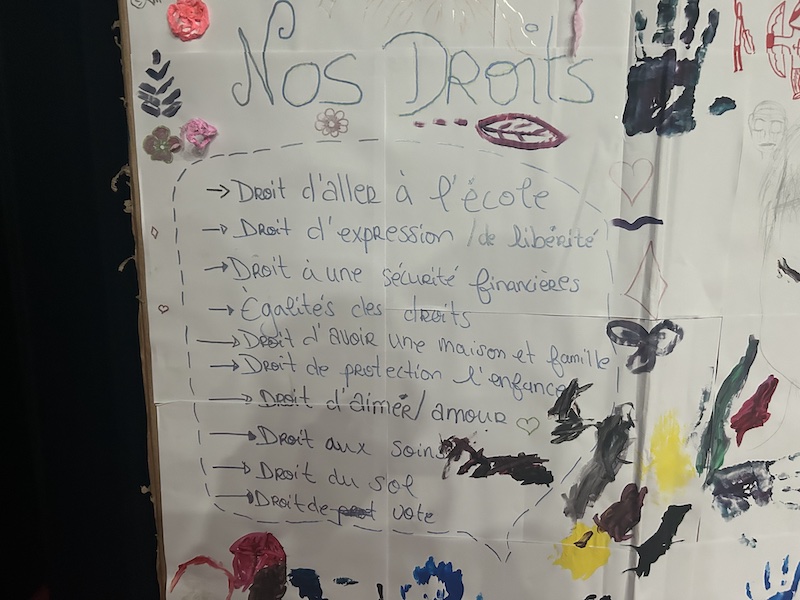 Nos Droits
→ Droit d'aller à l'école
→ Droit d'expression / de libérité
→ Droit à une sécurité financières
→ Égalités des droits
→ Droit d'avoir une maison et famille
→ Droit de protection l'enfance
→ Droit d'aimér / amour ♡
→ Droit aux soins
→ Droit du sol
→ Droit de prot vote